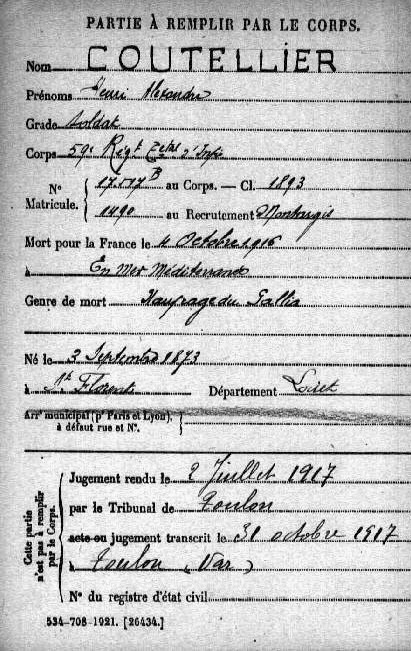 PARTIE À REMPLIR PAR LE CORPS.
Nom COUTELLIER
Prénoms Henri Alexandre
Grade Soldat
Corps 59e Rigt Ctal d'Infie
N° Matricule. { 17.517 B au Corps. — Cl. 1893
1490 au Recrutement Montargis
Mort pour la France le 4 Octobre 1916
à En Mer Méditerranée
Genre de mort Naufrage du Gallia
Né le 3 Septembre 1873
à St Florent Département Loiret
Arrt municipal (pr Paris et Lyon), à défaut rue et N°. }
Cette partie n'est pas à remplir par le Corps.
Jugement rendu le 2 Juillet 1917
par le Tribunal de Toulon
acte ou jugement transcrit le 31 octobre 1917
à Toulon (Var)
N° du registre d'état civil
534-708-1921. [26434.]